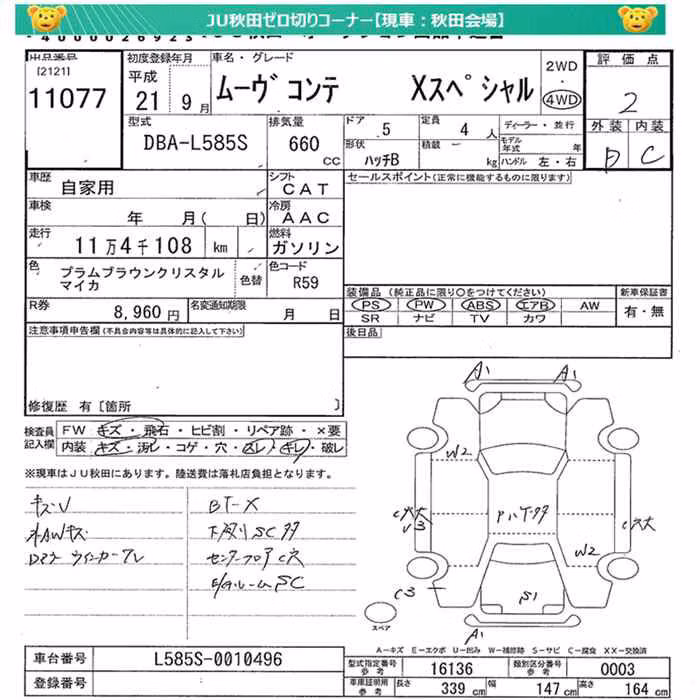 JU秋田ゼロ切りコーナー【現車：秋田会場】
出品番号
[2121]
11077
初度登録年月
平成
21年 9月
車名・グレード
ムーヴ コンテ Xスペシャル
2WD
・
4WD
評価点
2
外装 内装
D C
型式
DBA-L585S
排気量
660
CC
ドア 5
定員 4 人
ディーラー・並行
形状 ハッチB
積載 ー kg
モデル年式 年
ハンドル 左・右
車歴
自家用
シフト
CAT
セールスポイント(正常に機能するものに限ります)
車検
年 月( 日)
冷房
AAC
走行
11万4千108 km
燃料
ガソリン
色
プラムブラウンクリスタル
マイカ
色替
色コード
R59
装備品 (純正品に限り○をつけてください)
PS PW ABS エアB AW
SR ナビ TV カワ
新車保証書
有・無
R券
8,960 円
名変通知期限
月 日
後日品
注意事項申告欄(不具合内容等は具体的に記入して下さい)
修復歴 有 [箇所 ]
検査員
記入欄
FW キズ・飛石・ヒビ割・リペア跡・×要
内装 キズ・汚レ・コゲ・穴・スレ・キレ・破レ
※現車はJU秋田にあります。陸送費は落札店負担となります。
キズU
AWキズ
ウインカーワレ
BT-X
下廻りSCサ
センターフロア
ルームSC
A1 A1
W2
W2
C3
S1
A1
スペア
A－キズ E－エクボ U－凹み W－補修跡 S－サビ C－腐食 XX－交換済
車台番号
L585S-0010496
登録番号
型式指定番号
参考
16136
類別区分番号
参考
0003
車庫証明用
参考
長さ 339 cm
幅 147 cm
高さ 164 cm